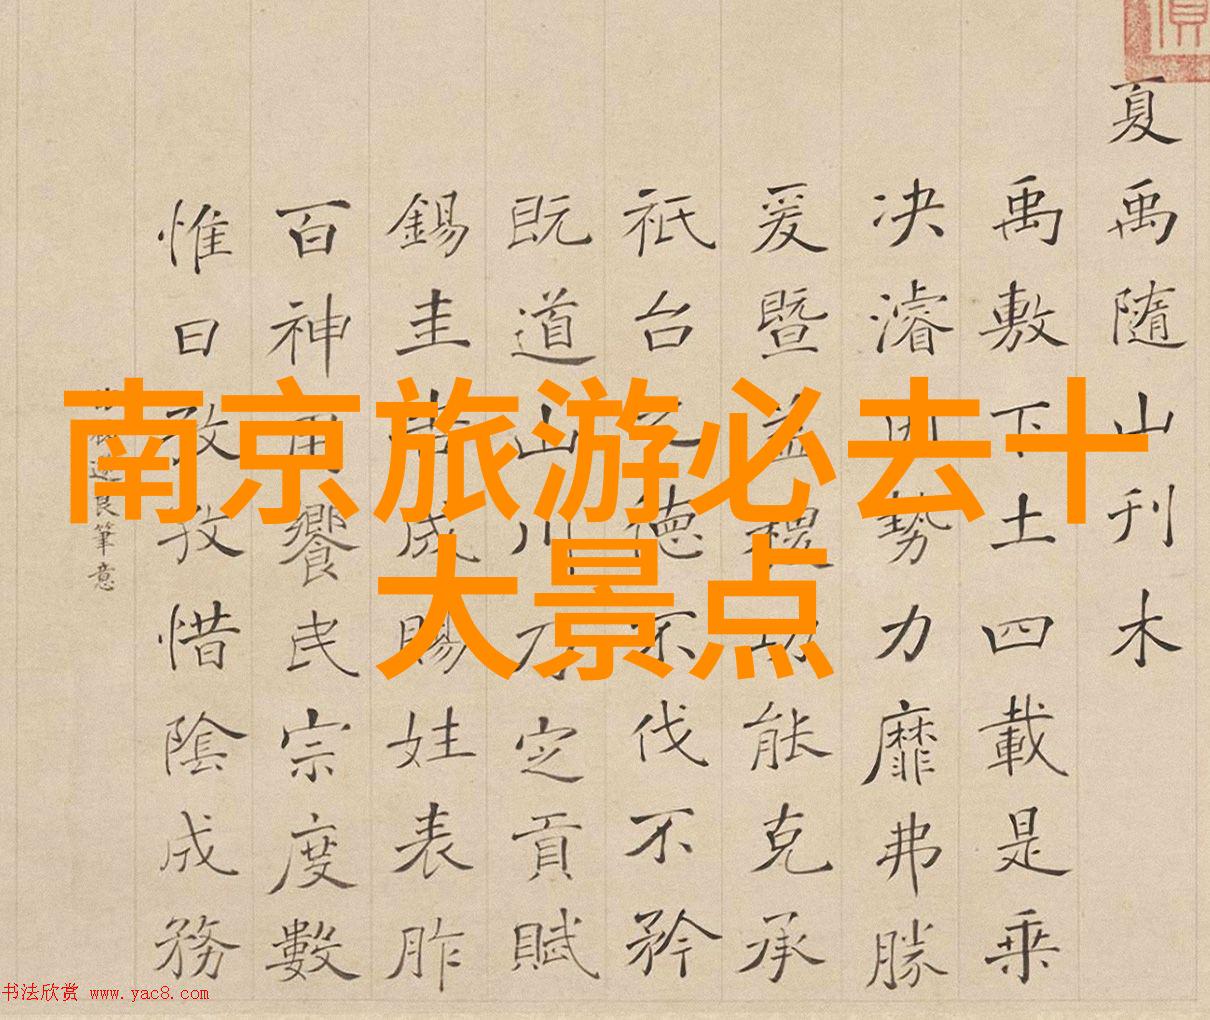 夏禹隨山刊木
禹敷下土四載是乘
决濬因勢力靡弗勝
爰暨益稷能克承
祇台德不伐不矜
既道山川乃定貢賦
錫圭告成賜姓表胙
百神用饗民宗度數
惟日孜孜惜陰成務
遂良筆意
南京旅游必去十
大景点
书法欣赏 www.yac8.com